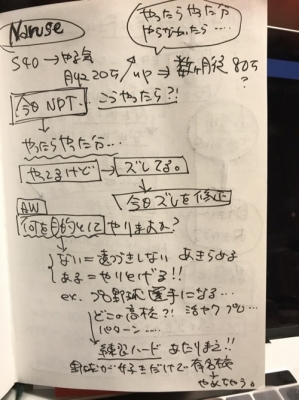 Naruse
やったらやった分
やらなかったら....
S40 → やる気
月収20万/up ⇒ 数ヶ月後 80万
?
今日NPT. こうやったら?!
やったらやった分...
やってるけど → ズレてる。
今日ズレを修正
AW
何を目的にして やりますか?
ない = 長つづきしない あきらめる
ある = やりとげる!!
ex. プロ野球選手になる...
どこの高校?! 活やく プロ...
パターン....
練習ハード あたりまえ!!
野球が好きだけで 有名校
やめちゃう。